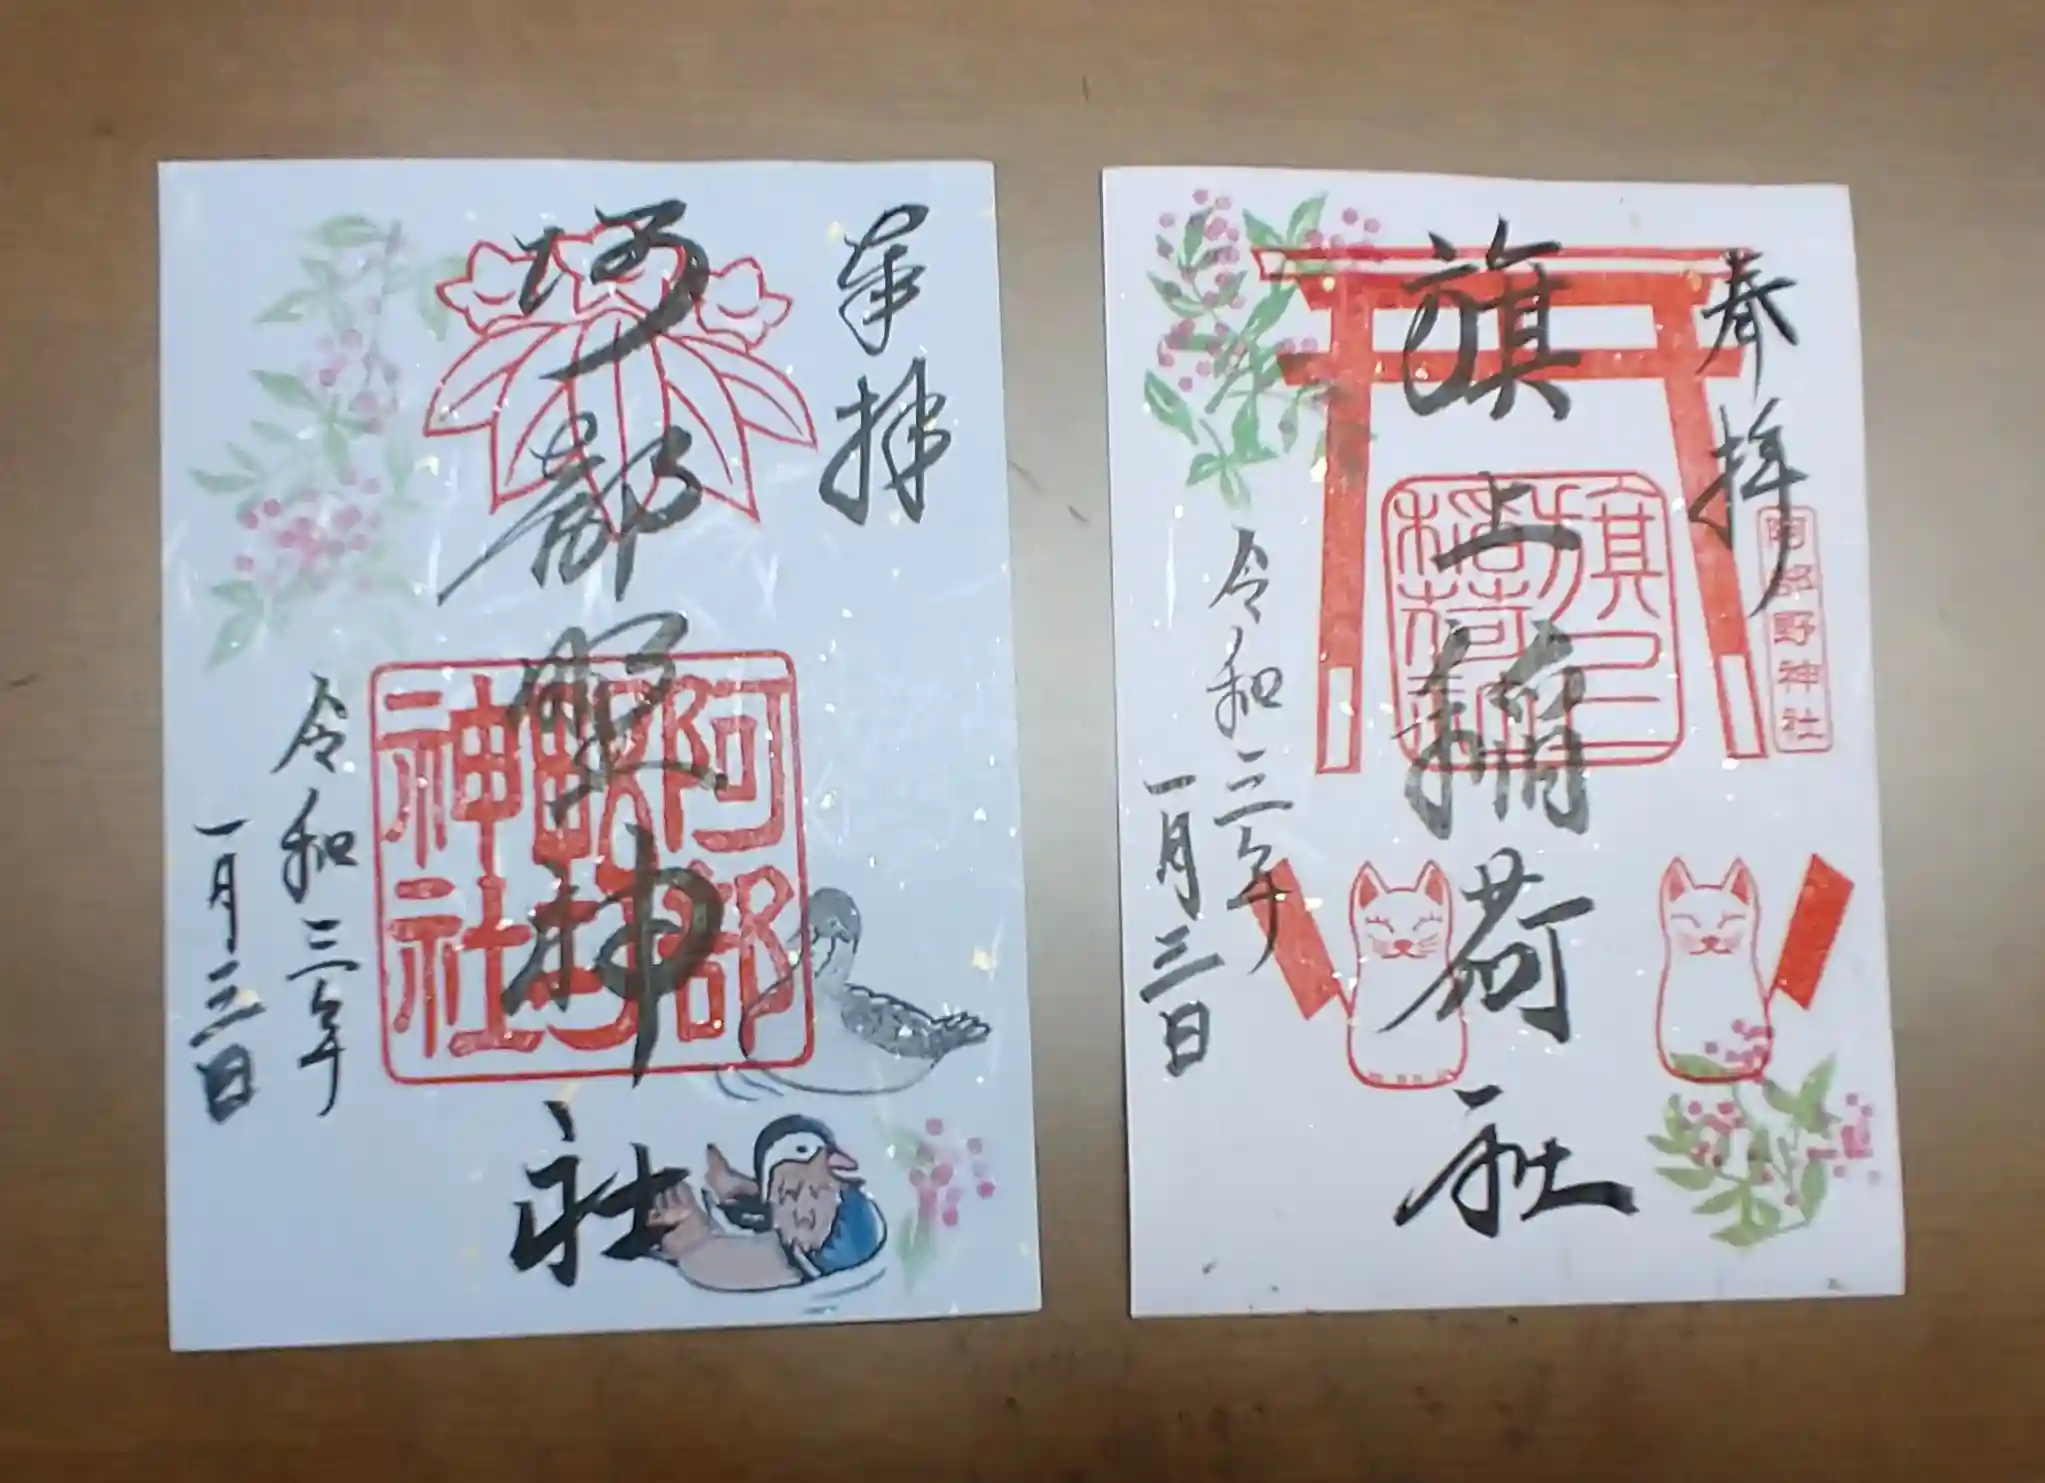 奉拝
阿部野神社
阿部野神社
令和三年
一月三日
奉拝
阿部野神社
旗上稲荷社
旗上稲荷社
令和三年
一月三日